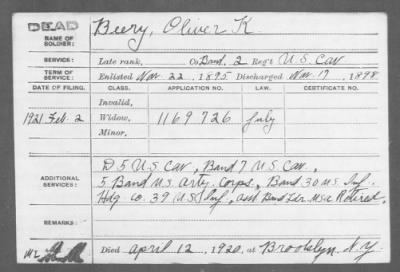 DEAD
NAME OF SOLDIER: Beery, Oliver K.
SERVICE: Late rank, Co Band, 2 Reg't U.S. Cav
TERM OF SERVICE: Enlisted Nov. 22, 1895 Discharged Nov. 17, 1898
DATE OF FILING. CLASS. APPLICATION NO. LAW. CERTIFICATE NO.
Invalid,
1921 Feb. 2 Widow, 1169726 July
Minor,
ADDITIONAL SERVICES: D 5 U.S. Cav, Band 7 U.S. Cav,
5 Band U.S. Arty. Corps, Band 30 U.S. Inf.
Hdq Co. 39 U.S. Inf, asst Band Ldr. USA Retired,
REMARKS:
Died April 12, 1920, at Brooklyn, N.Y.